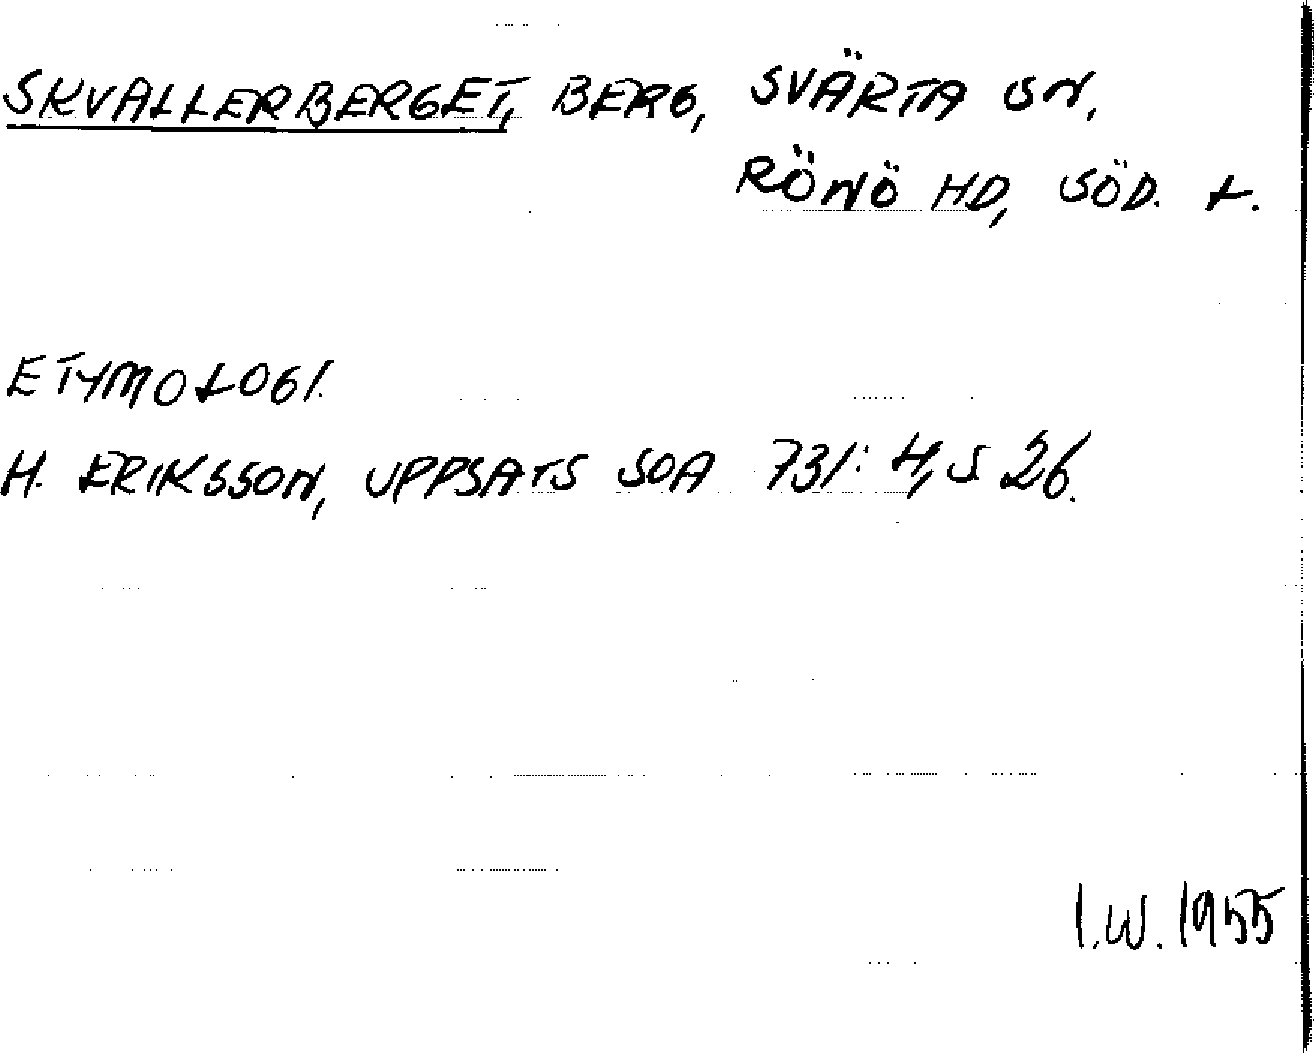 SKVALLERBERGET, BERG, SVÄRTA SN,
RÖNÖ HD, SÖD. L.
ETYMOLOGI.
H. ERIKSSON, UPPSATS SOA 731: 4, S 26.
I.W. 1955